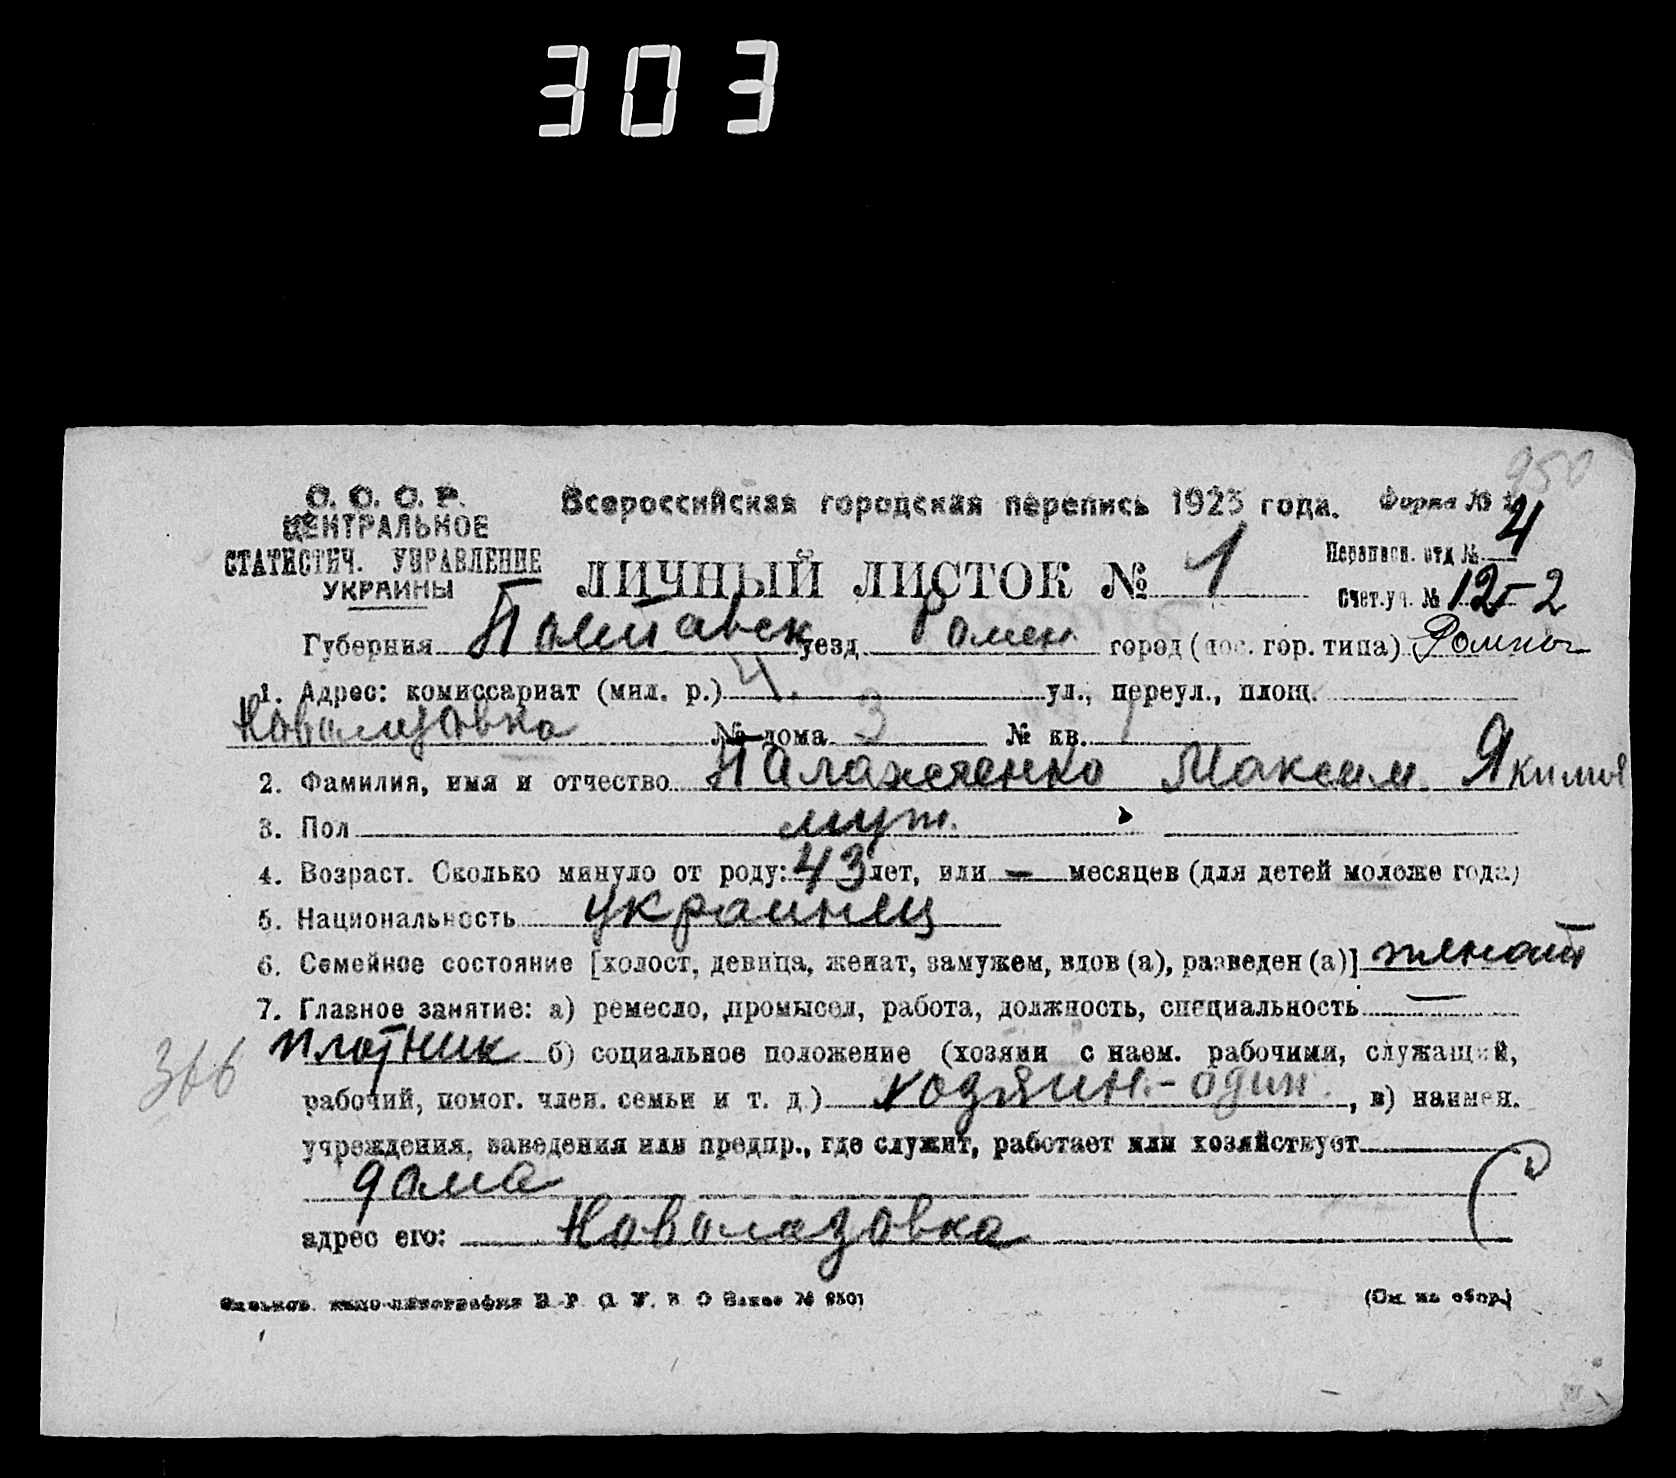 303
950
С. С. С. Р.
ЦЕНТРАЛЬНОЕ
СТАТИСТИЧ. УПРАВЛЕНИЕ
УКРАИНЫ
Всероссийская городская перепись 1923 года. Форма №
ЛИЧНЫЙ ЛИСТОК № 1
Переписн. отд № 4
Счет.уч. № 12-2
Губерния Полтавск уезд Ромен город (пос. гор. типа) Ромны
1. Адрес: комиссариат (мил. р.) 4. ул., переул., площ.
№ дома 3 № кв. 1
2. Фамилия, имя и отчество Максим Якимов
3. Пол муж.
4. Возраст. Сколько минуло от роду: 43 лет, или — месяцев (для детей моложе года)
5. Национальность украинец
6. Семейное состояние [холост, девица, женат, замужем, вдов (а), разведен (а)] женат
7. Главное занятие: а) ремесло, промысел, работа, должность, специальность
плотник б) социальное положение (хозяин с наем. рабочими, служащий,
366
рабочий, помог. член. семьи и т. д.) хозяин - один. , в) наимен.
учреждения, заведения или предпр., где служит, работает или хозяйствует
дома
адрес его:
(См. на обор.)